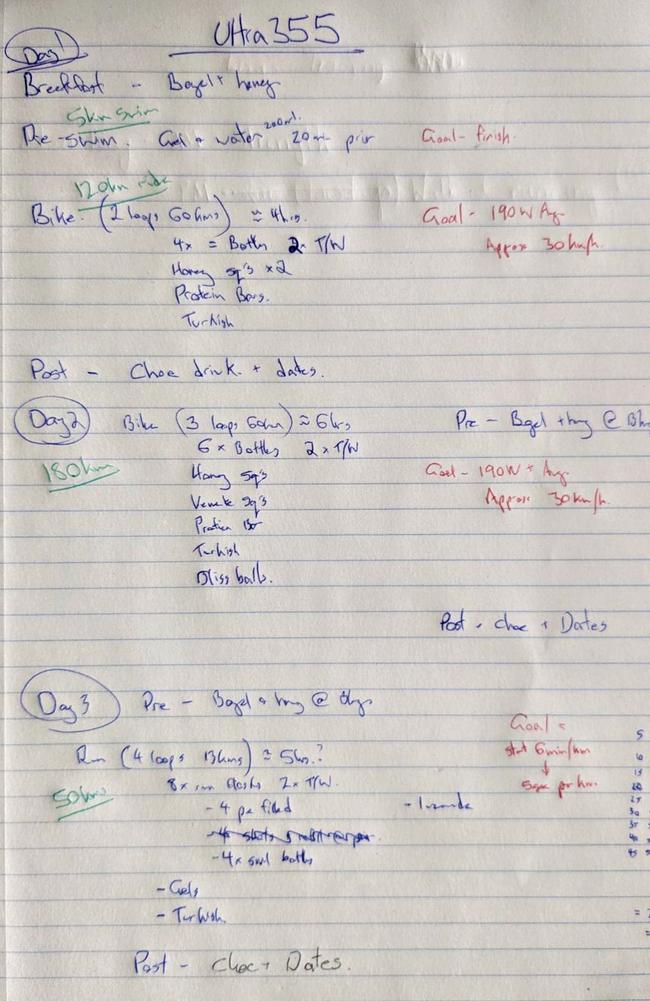 Ultra355
Day 1
Breakfast - Bagel + honey
5km swim
Pre-swim. Gel + water 200ml. 20min prior
Goal - finish.
120km ride
Bike. (2 loops 60kms) ≈ 4hrs.
Goal - 190W Avg
4x = Bottles 2x T/W
Approx 30km/h.
Honey sq's x2
Protein Bars.
Turkish
Post - Choc drink. + dates.
Day 2
Bike (3 loops 60km) ≈ 6hrs
Pre - Bagel + hny @
6 x Bottles 2 x T/W
180km
Honey sq's
Goal - 190W + Avg.
sq's
Approx 30km/h.
Protein Br
Turkish
Bliss balls.
Post - choc + Dates
Day 3
Pre - Bagel + hny @
Goal =
Run (4 loops 13kms) ≈ 5hrs.?
start 6min/km
8x run flasks 2x T/W.
↓
50kms
- 4 pre filled
per km.
- 4x smll bottles
- Gels
- Turkish.
Post - Choc + Dates.
5
10
15
20
25
30
35
40
45